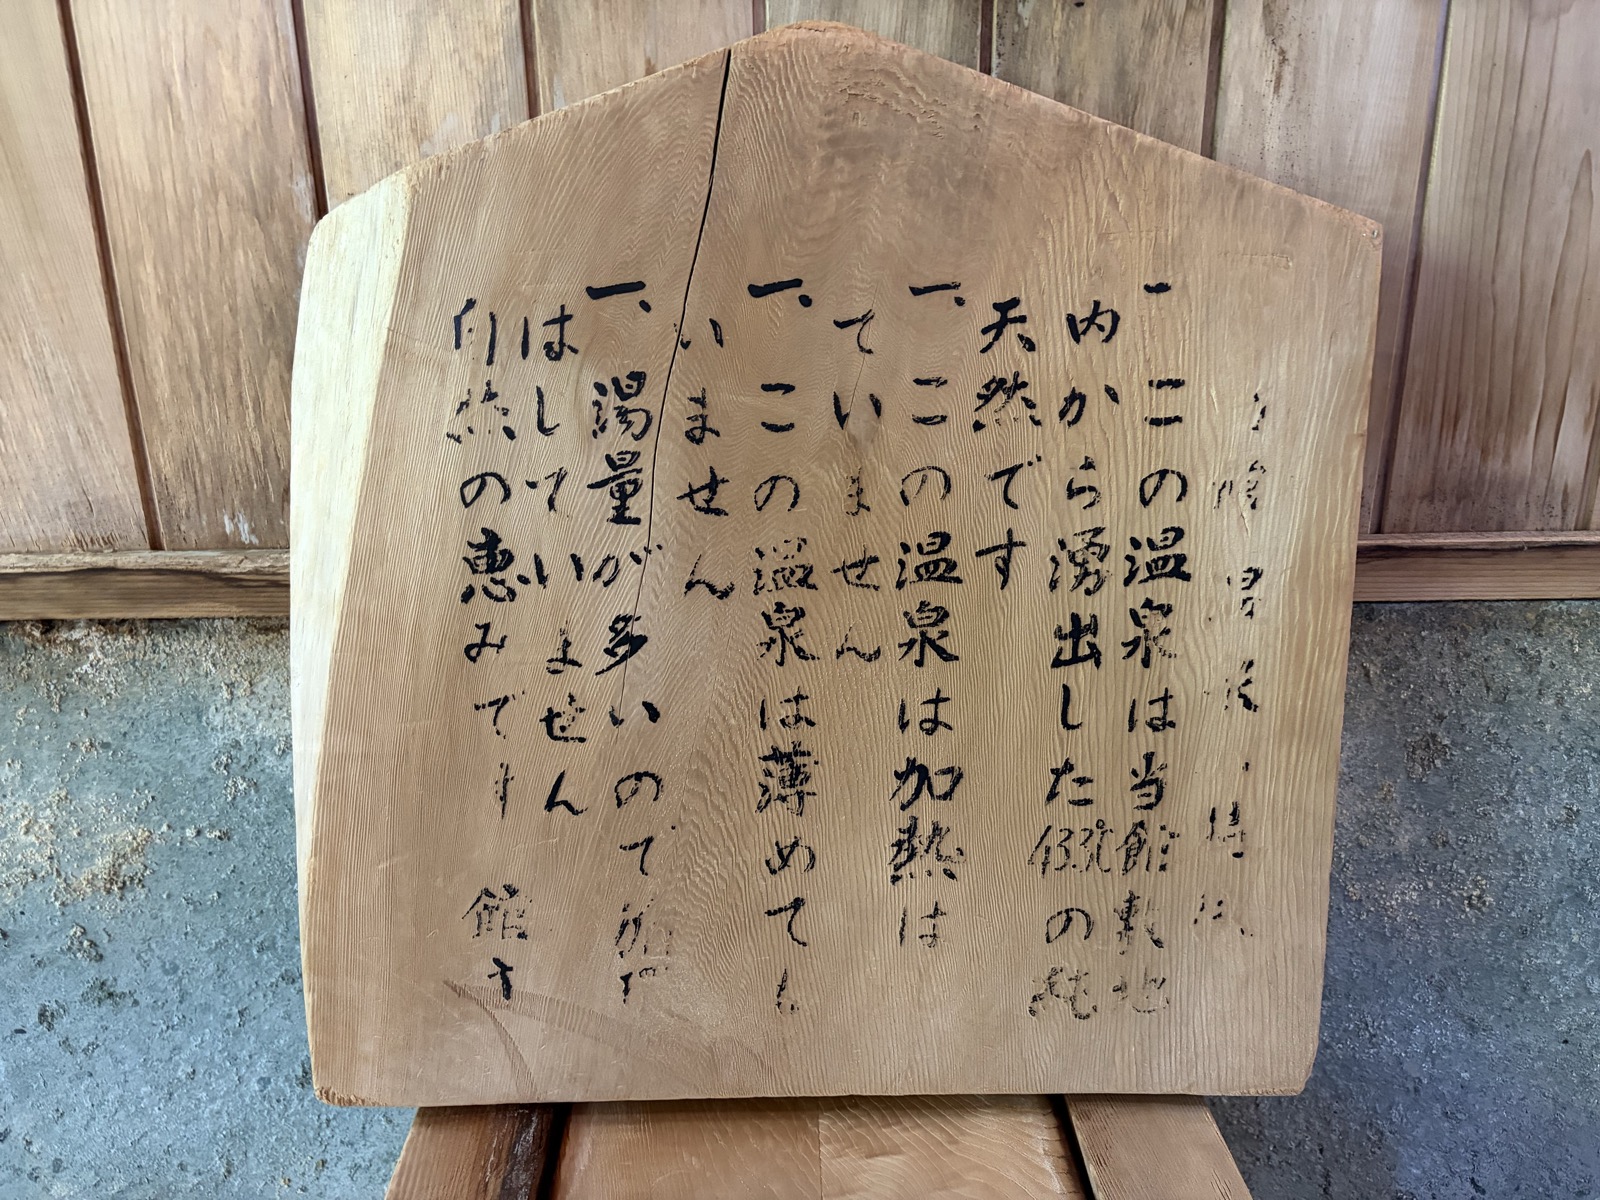 一、この温泉は当館敷地
内から湧出した43.3℃の純
天然です
一、この温泉は加熱は
ていません
一、この温泉は薄めても
いません
一、湯量が多いので循
はしていません
自然の恵みです 館主